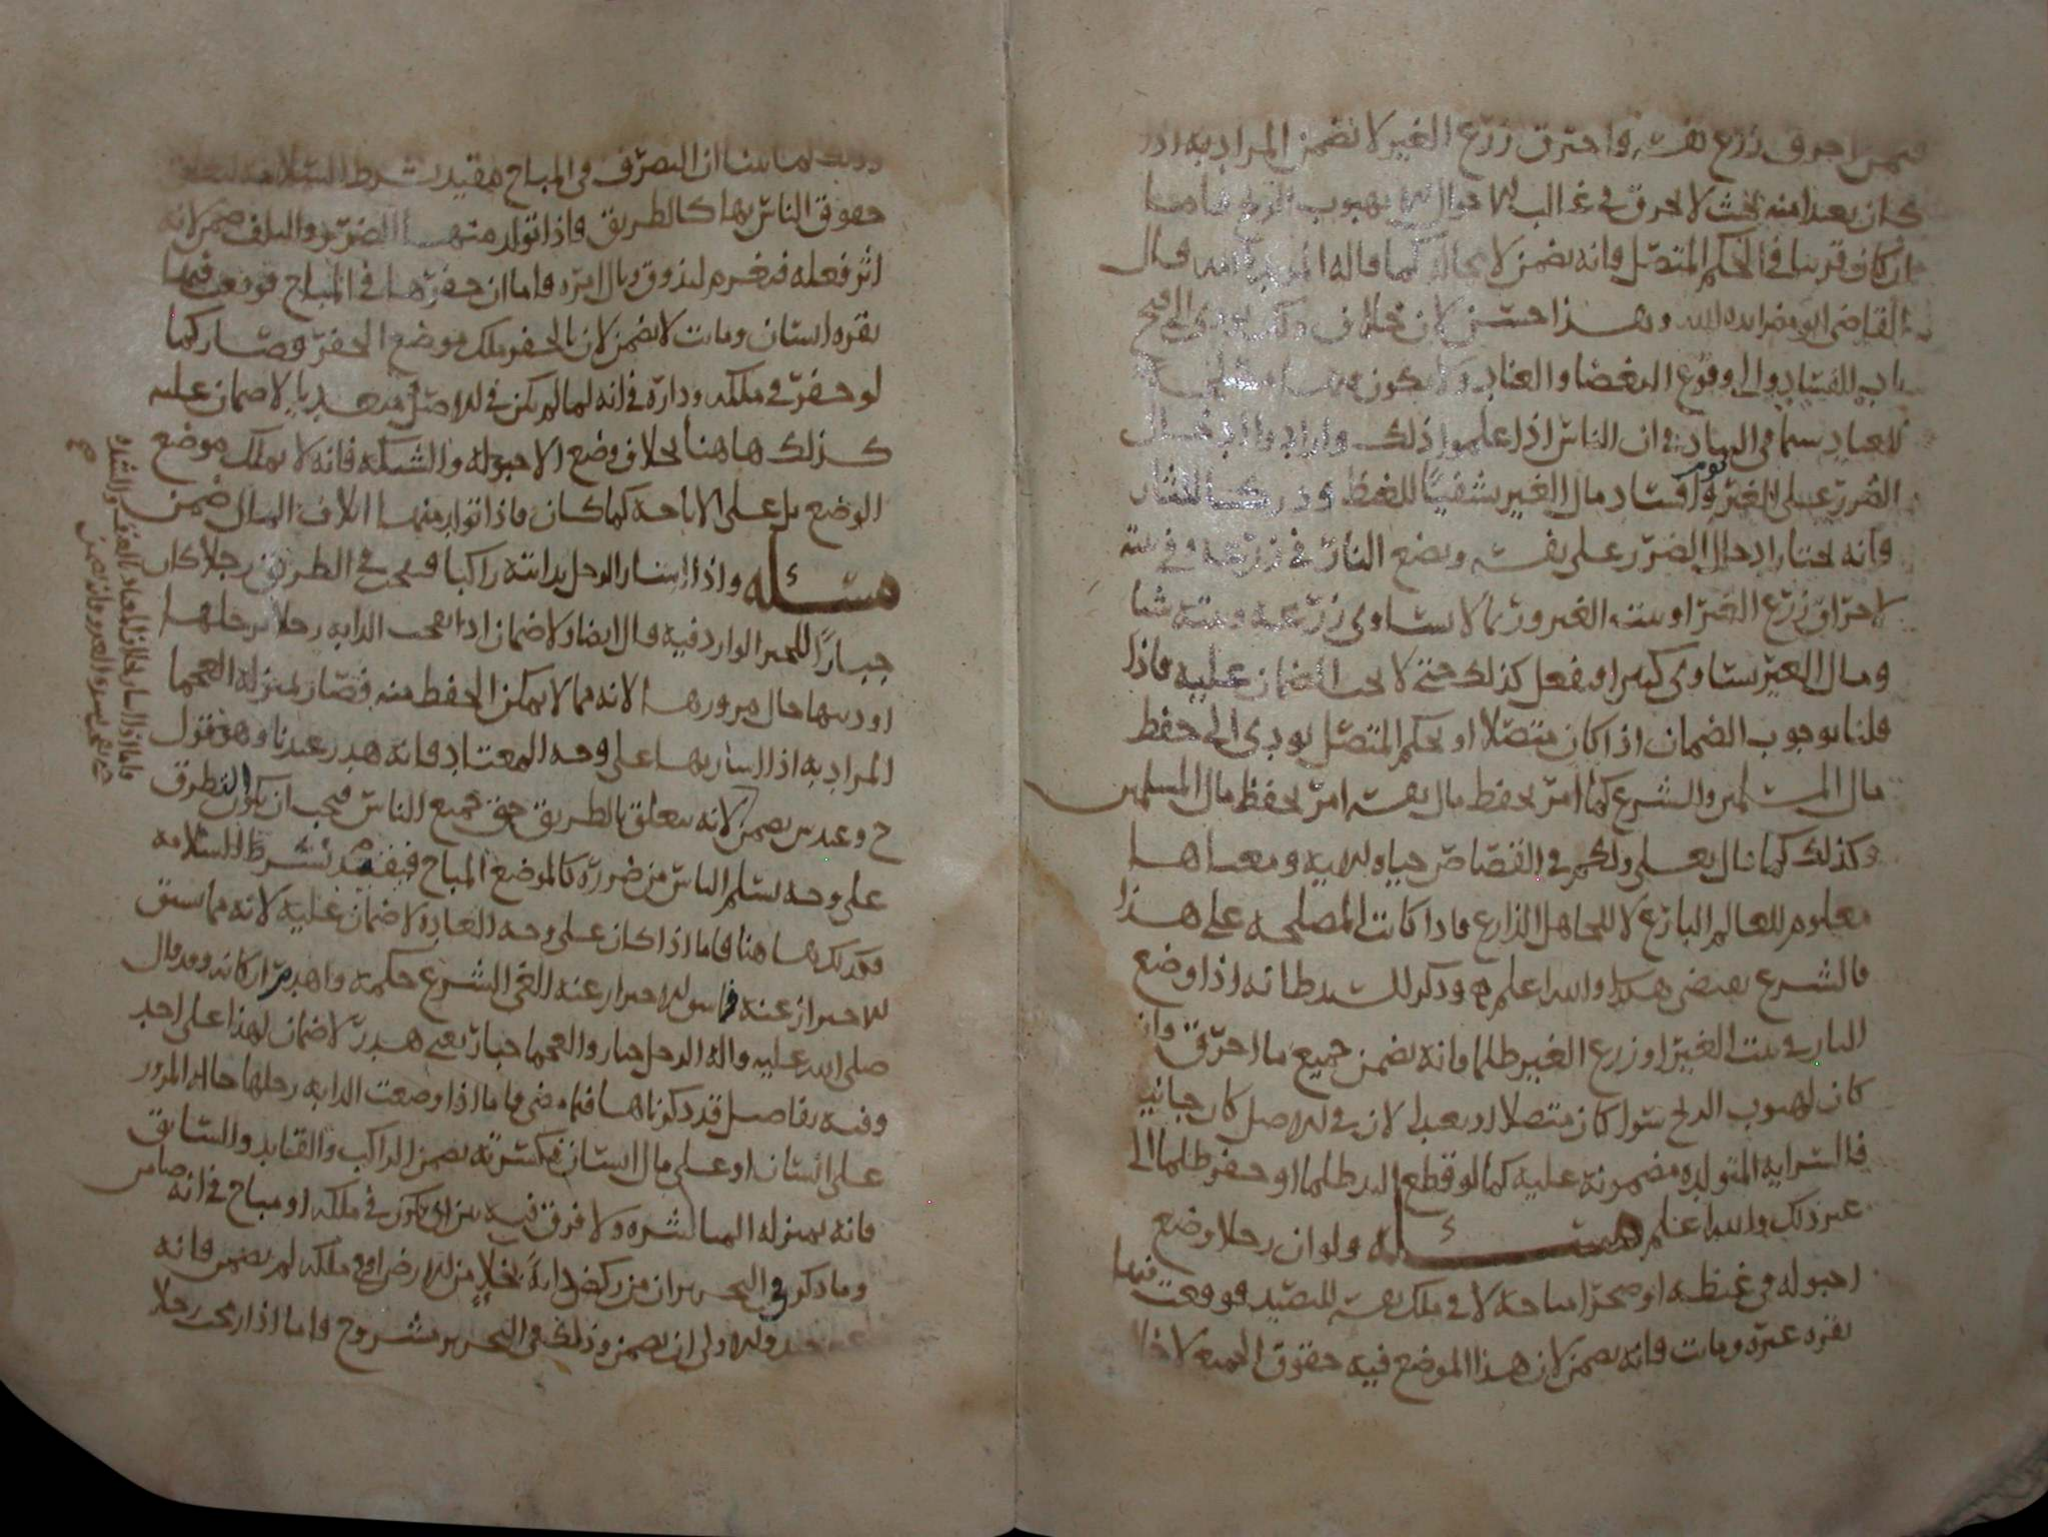 فيمن احرق زرع نفسه واحترق زرع الغير لا يضمن المراد به اذا
كان بعيدا منه بحيث لا يحرق في غالب الاحوال الا بهبوب الريح فاما
ان كان قريبا في الحكم المتصل فانه يضمن لا محالة كما قاله المويد بالله قال
القاضي ابو مضر ايده الله وهذا حسن لان خلاف ذلك يودي الى فتح
باب الفساد والى وقوع البغضا والعناد
للعباد سيما في البلاد فان الناس اذا علموا ذلك وارادوا ادخال
الضرر على الغير وافساد مال الغير تشفيا للغيظ ودركا للثار
فانه يختار ادخال الضرر على نفسه ويضع النار في زرعه وفي بيته
لاحراق زرع الغير او بيت الغير وربما لا يساوي زرعه وبيته شيا
ومال الغير يساوي كثيرا ويفعل كذلك حتى لا يجب الضمان عليه فاذا
قلنا بوجوب الضمان اذا كان متصلا او بحكم المتصل يودي الى حفظ
مال المسلمين والشرع كما امر بحفظ مال نفسه امر بحفظ مال المسلمين
وكذلك كما قال تعالى ولكم في القصاص حياة الاية ومعناها
معلوم للعالم البارع لا للجاهل الزارع فاذا كانت المصلحة على هذا
فالشرع يقتضي هكذا والله اعلم وذكر للشرط انه اذا وضع
النار في بيت الغير او زرع الغير ظلما فانه يضمن جميع ما احترق وان
كان لهبوب الريح سوا كان متصلا او بعيدا لان في الاصل كان جانيا
فالسراية المتولدة مضمونة عليه كما لو قطع اليد ظلما او حفر ظلما الى
غير ذلك والله اعلم مسئلة ولو ان رجلا وضع
احبولة في غيظة او صحرا مباحة لا في ملك نفسه للصيد فوقعت فيها
بقرة غيره وماتت فانه يضمن لان هذا الموضع فيه حقوق الجميع
وذلك لما بينا ان التصرف في المباح مقيد بشرط السلامة لتعلق
حقوق الناس بها كالطريق فاذا تولد منهما الضرر والتلف ضمن لانه
اثر فعله فيغرم ليذوق وبال امره واما ان حفرها في المباح فوقعت فيها
بقرة انسان وماتت لا يضمن لان بالحفر ملك موضع الحفر وصار كما
لو حفر في ملكه وداره فانه لما لم يكن في الاصل متعديا لا ضمان عليه
كذلك هاهنا بخلاف وضع الاحبولة والشبكة فانه لا يملك موضع
الوضع بل على الاباحة كما كان فاذا تولد منهما اتلاف المال ضمن
مسئلة واذا سار الرجل بدابته راكبا فنفحت في الطريق رجلا كان
جبارا للخبر الوارد فيه قال ايضا ولا ضمان اذا نفحت الدابة رجلا برجلها
او ذنبها حال مرورها لانه مما لا يمكن الحفظ منه فصار بمنزلة العجما
المراد به اذا سار بها على وجه المعتاد فانه هدر عندنا وهو قول
ح وعند س يضمن لانه يتعلق بالطريق حق جميع الناس فيجب ان يكون التطرق
على وجه يسلم الناس من ضرره كالموضع المباح فيقيد بشرط السلامة
فكذلك هاهنا فاما اذا كان على وجه العادة لا ضمان عليه لانه مما سبق
الاحتراز عنه الاحتراز عنه الغى الشرع حكمه واهدر اركانه وقد قال
صلى الله عليه واله الرجل جبار والعجما جبار يعني هدر لا ضمان لهذا على احد
وفيه تفاصيل قد ذكرناها فيما مضى فاما اذا وضعت الدابة رجلها حالة المرور
على انسان او على مال انسان فكسرته يضمن الراكب والقايد والسايق
فانه بمنزلة المباشرة ولا فرق فيه بين ان يكون في ملكه او مباح في انه ضامن
وما ذكر في التحرير ان من ركض دابة بخلاء من الارض او في ملكه لم يضمن فانه
والاولى ان يضمن وذلك في التحرير مشروح واما اذا نفحت رجلا